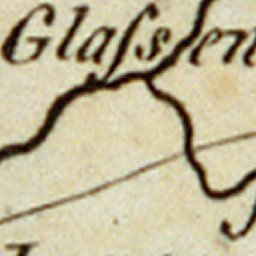 Glaſsen